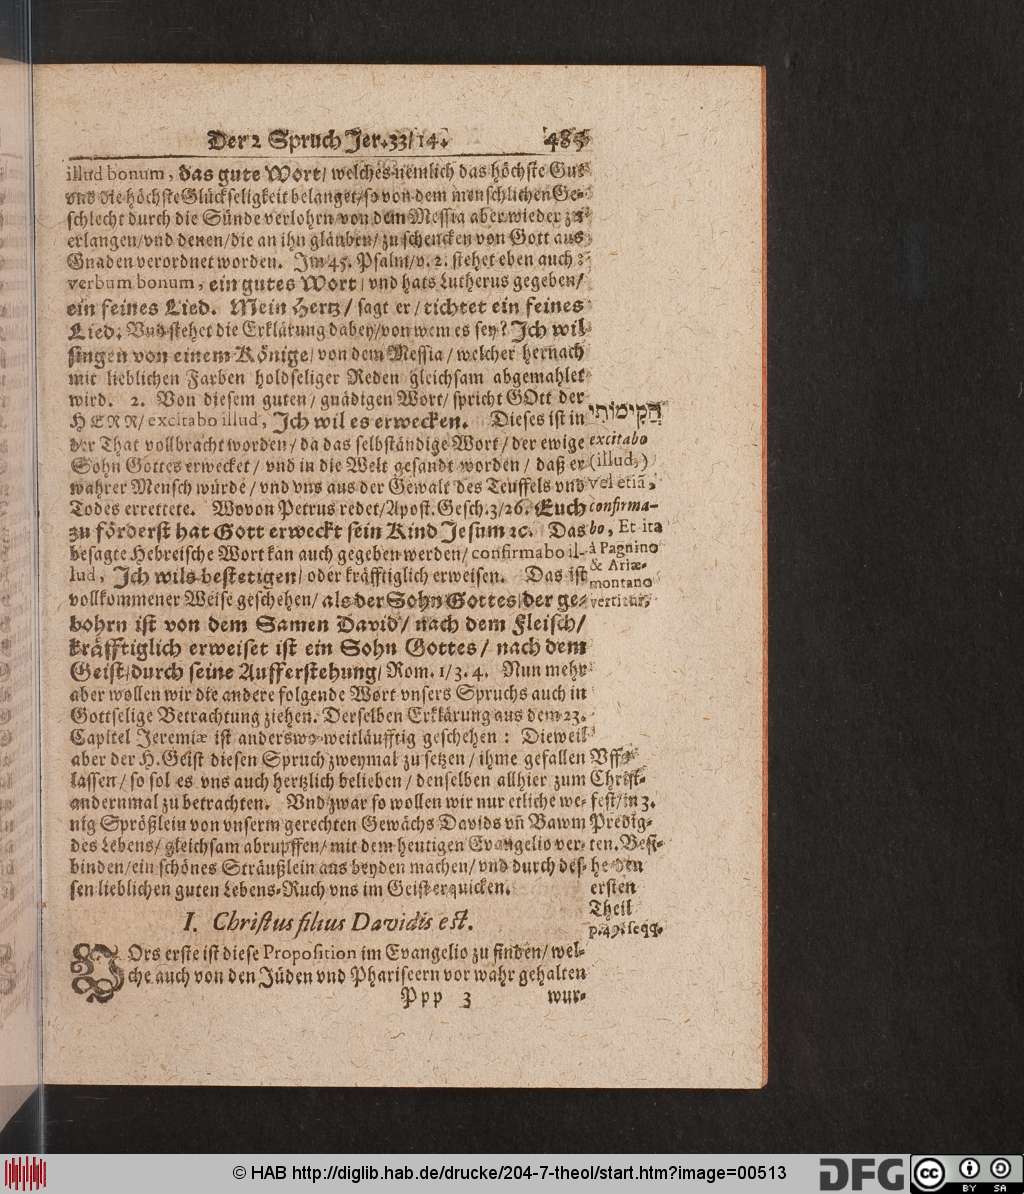 Der 2 Spruch Jer. 33/14. 485
illud bonum, das gute Wort/ welches nemlich das höchste Gut
vnd die höchste Glückseligkeit belanget/ so von dem menschlichen Ge-
schlecht durch die Sünde verlohrn von dem Messia aber wieder zu
erlangen/ vnd denen/ die an ihn gläuben/ zu schencken von Gott aus
Gnaden verordnet worden. Im 45. Psalm/ v. 2. stehet eben auch:
verbum bonum, ein gutes Wort/ vnd hats Lutherus gegeben/
ein feines Lied. Mein Hertz/ sagt er/ tichtet ein feines
Lied. Vnd stehet die Erklärung dabey/ von wem es sey? Ich wil
singen von einem Könige/ von dem Messia/ welcher hernach
mit lieblichen Farben holdseliger Reden gleichsam abgemahlet
wird. 2. Von diesem guten/ gnädigen Wort/ spricht GOtt der
HERR/ excitabo illud, Ich wil es erwecken. Dieses ist in
der That vollbracht worden/ da das selbständige Wort/ der ewige
Sohn Gottes erwecket/ vnd in die Welt gesandt worden/ daß er
wahrer Mensch würde/ vnd vns aus der Gewalt des Teuffels vnd
Todes errettete. Wovon Petrus redet/ Apost. Gesch. 3/26. Euch
zu förderst hat Gott erweckt sein Kind Jesum ꝛc. Das
besagte Hebreische Wort kan auch gegeben werden/ confirmabo il-
lud, Ich wils bestetigen/ oder kräfftiglich erweisen. Das ist
vollkommener Weise geschehen/ als der Sohn Gottes/ der ge-
bohrn ist von dem Samen David/ nach dem Fleisch/
kräfftiglich erweiset ist ein Sohn Gottes/ nach dem
Geist/ durch seine Aufferstehung/ Rom. 1/3. 4. Nun mehr
aber wollen wir die andere folgende Wort vnsers Spruchs auch in
Gottselige Betrachtung ziehen. Derselben Erklärung aus dem 23.
Capitel Jeremiæ ist anderswo weitläufftig geschehen: Dieweil
aber der H. Geist diesen Spruch zweymal zu setzen/ ihme gefallen
lassen/ so sol es vns auch hertzlich belieben/ denselben allhier zum
andernmal zu betrachten. Vnd zwar so wollen wir nur etliche we-
nig Sprößlein von vnserm gerechten Gewächs Davids vñ Bawm
des Lebens/ gleichsam abrupffen/ mit dem heutigen Evangelio ver-
binden/ ein schönes Sträußlein aus beyden machen/ vnd durch des-
sen lieblichen guten Lebens-Ruch vns im Geist erquicken.
I. Christus filius Davidis est.
VOrs erste ist diese Proposition im Evangelio zu finden/ wel-
che auch von den Jüden vnd Phariseern vor wahr gehalten
Ppp 3 wur-
הֲקִימוֹתִי
excitabo
(illud,)
vel etiã,
confirma-
bo, Et ita
à Pagnino
& Ariæ-
montano
vertitur.
Vff
Christ-
fest/ in 3.
Predig-
ten. Besi-
he den
ersten
Theil
p. 491. seqq.
© HAB http://diglib.hab.de/drucke/204-7-theol/start.htm?image=00513
DFG
cc
BY SA